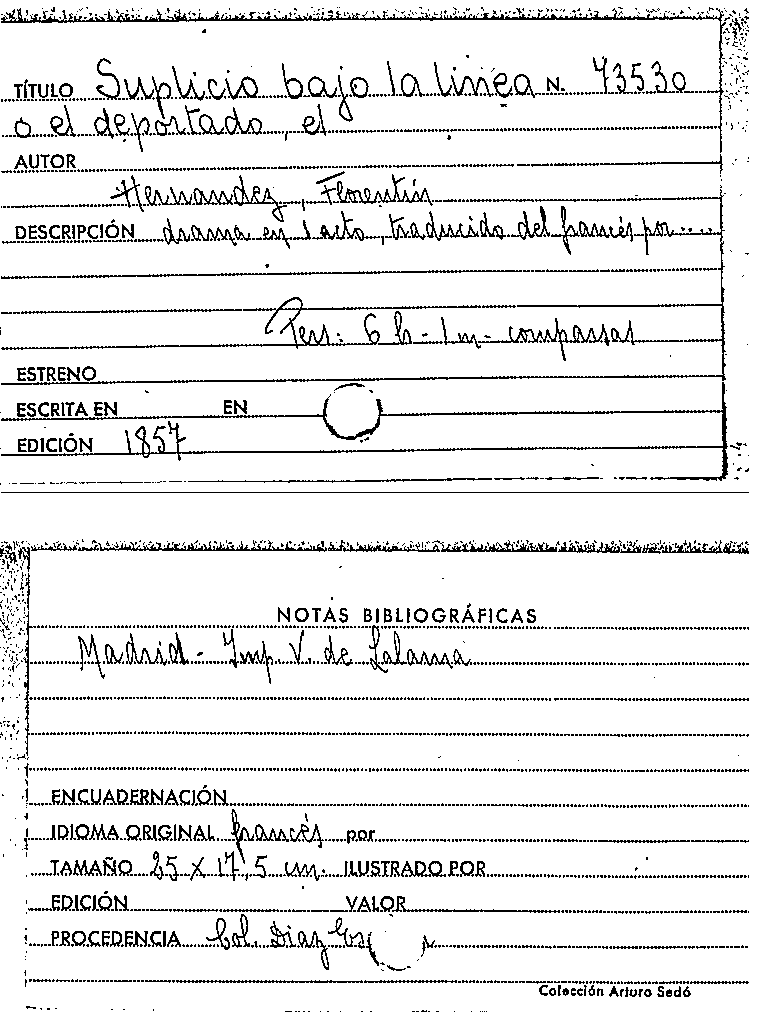 TÍTULO Suplicio bajo la linea N. 73530
o el deportado, el
AUTOR
Hernandez, Florentín
DESCRIPCIÓN drama en 1 acto, traducido del francés por....
Pers: 6 h - 1 m - comparsas
ESTRENO
ESCRITA EN EN
EDICIÓN 1857
NOTAS BIBLIOGRÁFICAS
Madrid - Imp. V. de Lalama
ENCUADERNACIÓN
IDIOMA ORIGINAL francés por
TAMAÑO 25 X 17,5 cm. ILUSTRADO POR
EDICIÓN VALOR
PROCEDENCIA Col. Diaz
Colección Arturo Sedó